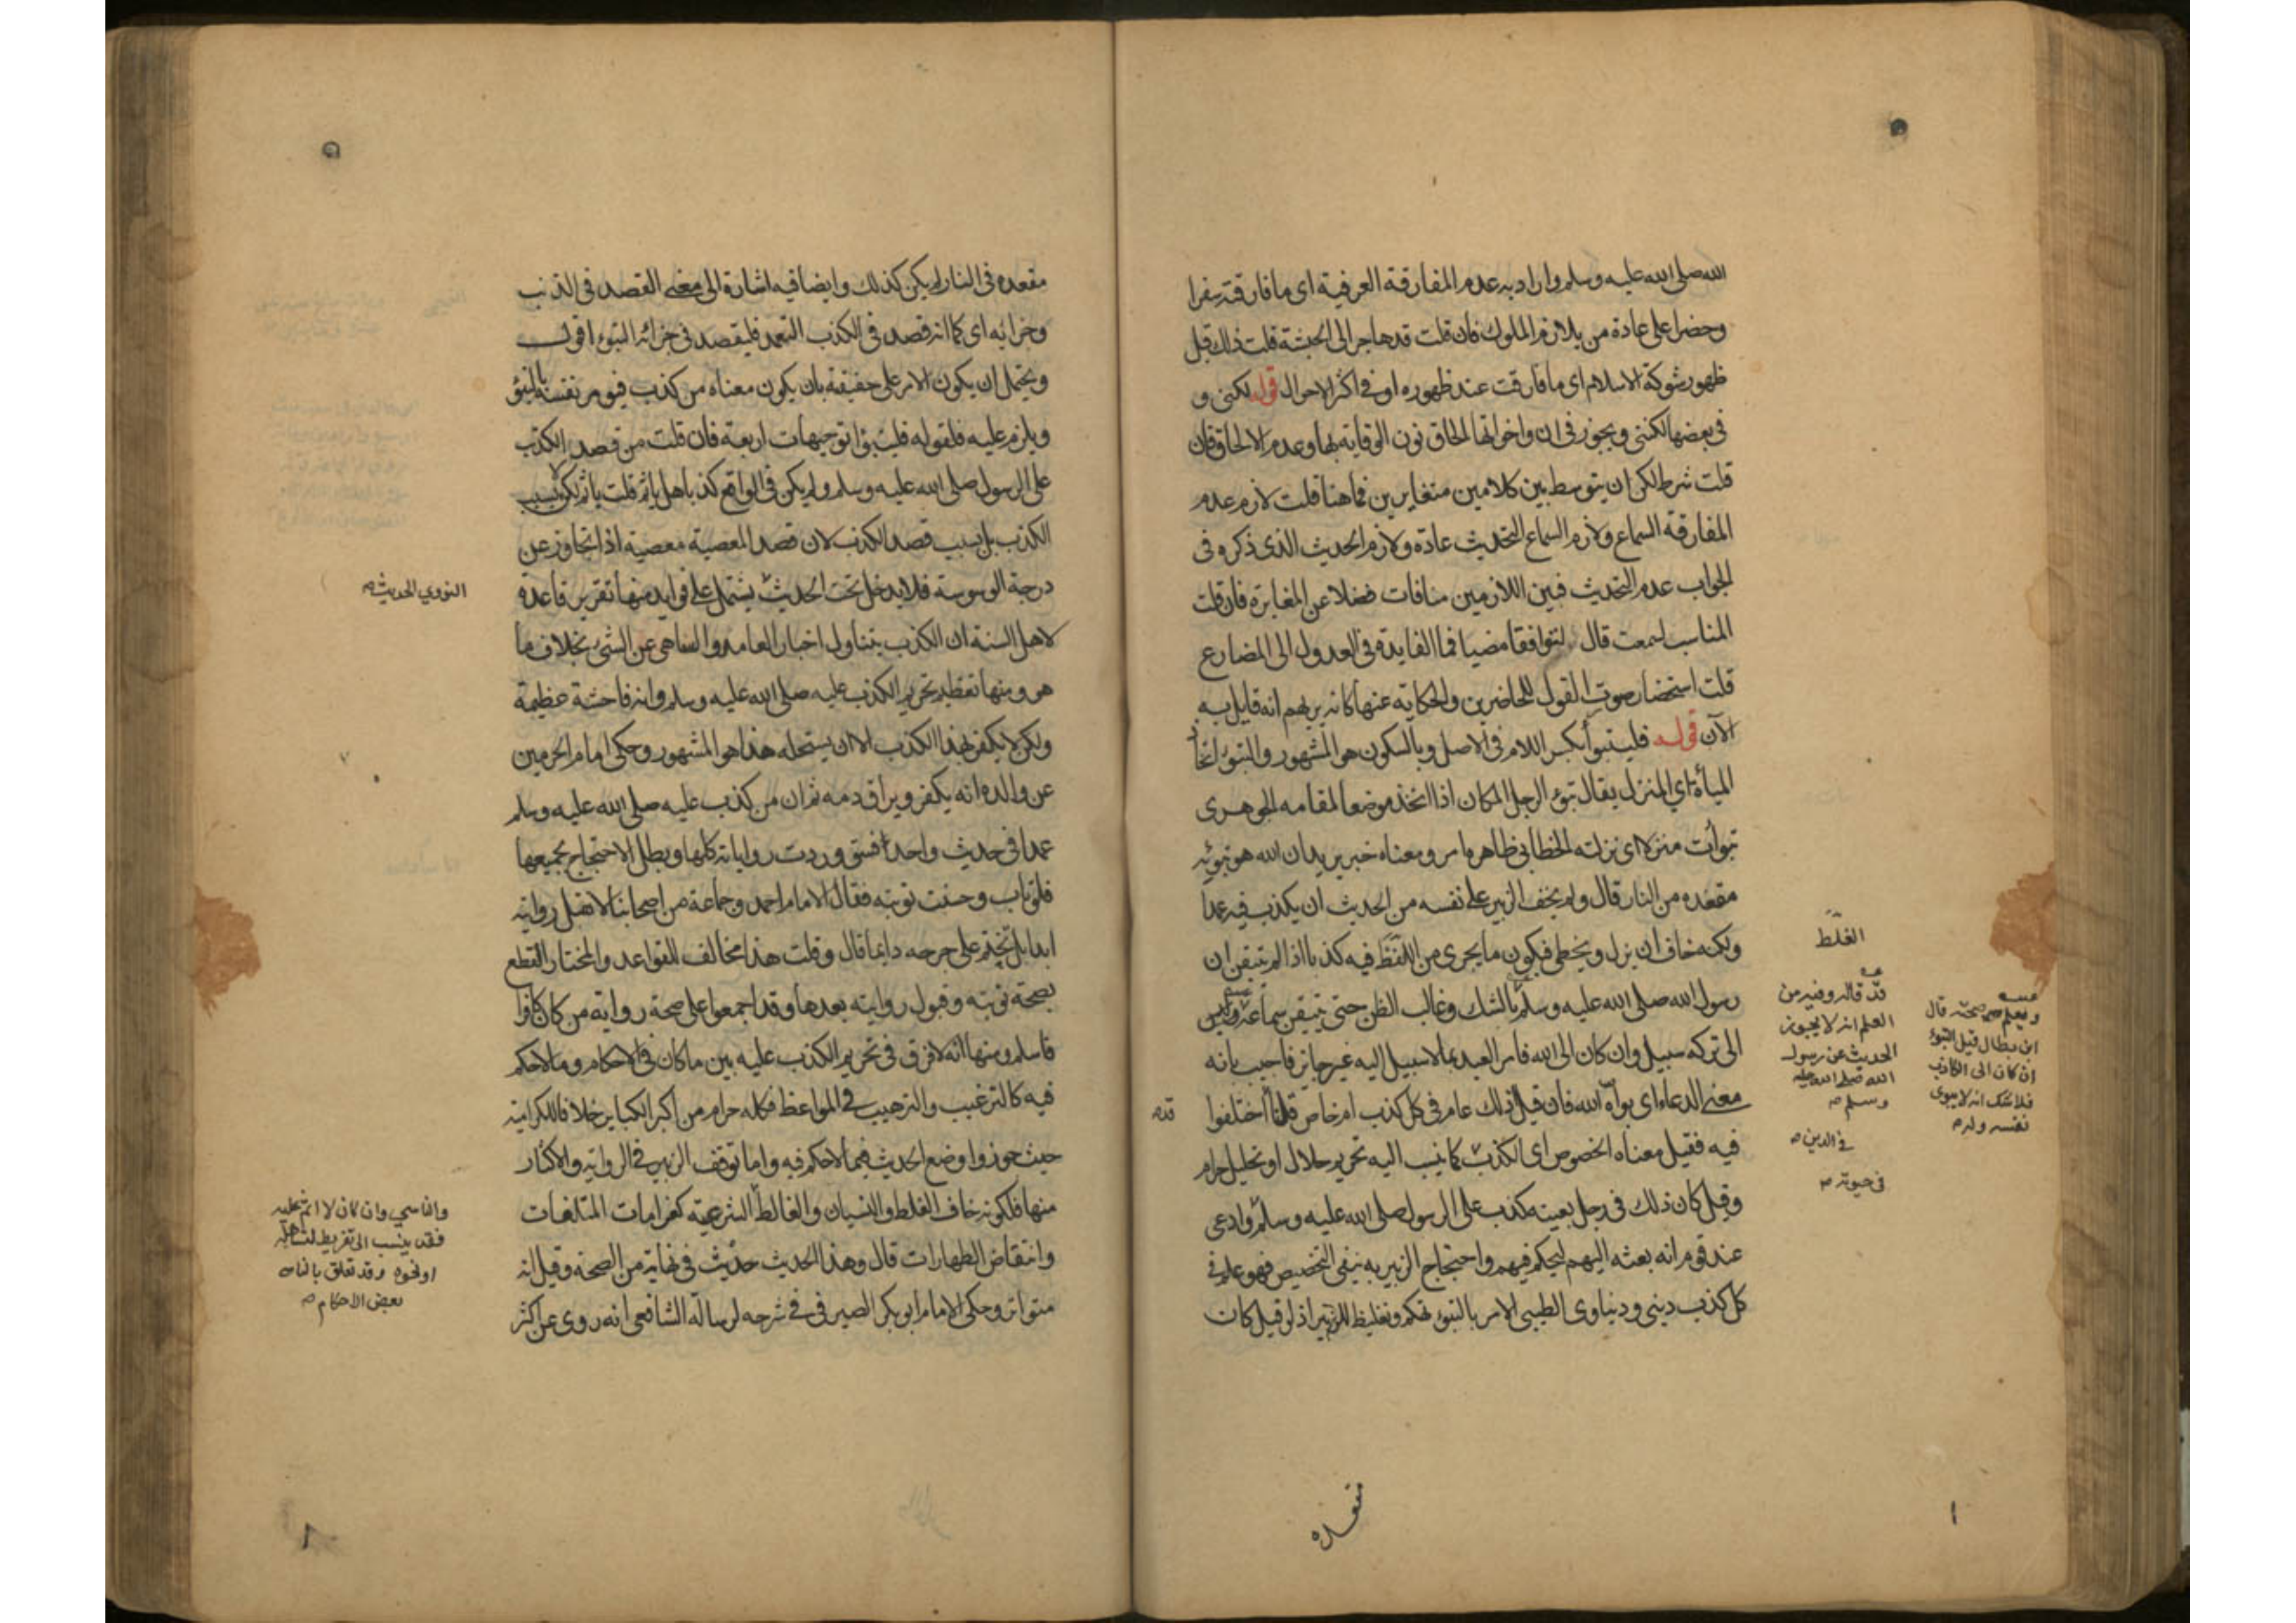 الله صلى الله عليه وسلم واراد به عدم المفارقة العرفية اى ما فارقته سفرا
وحضرا على عادة من يلازم الملوك فان قلت قد هاجر الى الحبشة قلت ذاك قبل
ظهور شوكة الاسلام اى ما فارقت عند ظهوره او فى اكثر الاحوال قوله لكنى و
فى بعضها لكننى ويجوز فى ان واخواتها الحاق نون الوقاية بها وعدم الالحاق فان
قلت شرط لكن ان يتوسط بين كلامين متغايرين فما هنا قلت لازم عدم
المفارقة السماع ولازم السماع التحديث عادة ولازم الحديث الذى ذكره فى
الجواب عدم التحديث فبين اللازمين منافات فضلا عن المغايرة فان قلت
المناسب لسمعت قال ليتوافقا مضيا فما الفايدة فى العدول الى المضارع
قلت استحضار صورة القول للحاضرين والحكاية عنها كانه يريهم انه قايل به
الآن قوله فليتبوأ بكسر اللام فى الاصل وبالسكون هو المشهور والتبوء اتخاذ
المباءة اي المنزل يقال تبوء الرجل المكان اذا اتخذ موضعا لمقامه الجوهرى
تبوأت منزلا اى نزلته الخطابى ظاهره امر ومعناه خبر يريد ان الله هو تبوئه
مقعده من النار قال ولم يخف الزبير على نفسه من الحديث ان يكذب فيه عمدا
ولكنه خاف ان يزل ويخطى فيكون ما يجرى من اللفظ فيه كذبا اذا لم يتيقن ان
رسول الله صلى الله عليه وسلم بالشك وغالب الظن حتى يتيقن سماعه وليس
الى تركه سبيل وان كان الى الله فامر العبد بما لا سبيل اليه غير جايز فاجيب بانه
معنى الدعاء اى بوأه الله فان قيل ذلك عام فى كل كذب ام خاص قلنا اختلفوا
فيه فقيل معناه الخصوص اى الكذب كما نسب اليه تحريم حلال او تحليل حرام
وقيل كان ذلك فى رجل بعينه كذب على الرسول صلى الله عليه وسلم وادعى
عند قوم انه بعثه اليهم ليحكم فيهم واحتجاج الزبير به ينفى التخصيص فهو عام فى
كل كذب دينى ودنياوى الطيبى الامر بالتبوء تهكم وتغليظ اذ لو قيل كان
الغلط
قد قاله وفيه من
العلم انه لا يجوز
الحديث عن رسول
الله صلى الله عليه
وسلم
فى الدين
فى حيوته
ويعلم صحته قال
ابن بطال قيل التبوء
ان كان الى الكاذب
فلا شك انه لا يبوئ
نفسه وله
مقعده
مقعده فى النار لم يكن كذلك وايضا فيه اشارة الى معنى القصد فى الذنب
وجزائه اى كما انه قصد فى الكذب التعمد فليقصد فى جزائه التبوء اقول
ويحتمل ان يكون الامر على حقيقة بان يكون معناه من كذب فيومر نفسه بالتبوء
ويلزم عليه فلقوله فليتبوا توجيهات اربعة فان قلت من قصد الكذب
على الرسول صلى الله عليه وسلم ولم يكن فى الواقع كذبا هل ياثم قلت ياثم لكن لا بسبب
الكذب بل بسبب قصد الكذب لان قصد المعصية معصية اذا تجاوز عن
درجة الوسوسة فلا يدخل تحت الحديث يشتمل على فوايد منها تقرير قاعدة
لاهل السنة ان الكذب يتناول اخبار العامد والساهى عن الشىء بخلاف ما
هو ومنها تعظيم تحريم الكذب عليه صلى الله عليه وسلم وانه فاحشة عظيمة
ولكن لا يكفر بهذا الكذب الا ان يستحله هذا هو المشهور وحكى امام الحرمين
عن والده انه يكفر ويراق دمه ثم ان من كذب عليه صلى الله عليه وسلم
عمدا فى حديث واحد فسق وردت رواياته كلها وبطل الاحتجاج بجميعها
فلو تاب وحسنت توبته فقال الامام احمد وجماعة من اصحابنا لا تقبل روايته
ابدا بل تحتم على جرحه دايما قال وقلت هذا مخالف للقواعد والمختار القطع
بصحة توبته وقبول روايته بعدها وقد اجمعوا على صحة رواية من كان كافرا
فاسلم ومنها انه لا فرق فى تحريم الكذب عليه بين ما كان فى الاحكام وما لا حكم
فيه كالترغيب والترهيب فى المواعظ فكله حرام من اكبر الكباير خلافا للكرامية
حيث جوزوا وضع الحديث فيما لا حكم فيه واما توقف الزبير فى الرواية والاكثار
منها فلكونه خاف الغلط والنسيان والغالط الشرعية كغرامات المتلفات
وانتقاض الطهارات قال وهذا الحديث حديث فى نهاية من الصحة وقيل انه
متواتر وحكى الامام ابو بكر الصيرفى فى شرحه لرسالة الشافعى انه روى عن اكثر
النووي الحديث
والناسي وان كان لا اثم عليه
فقد ينسب الى تفريط لتساهله
او نحوه وقد تعلق بالناسى
بعض الاحكام